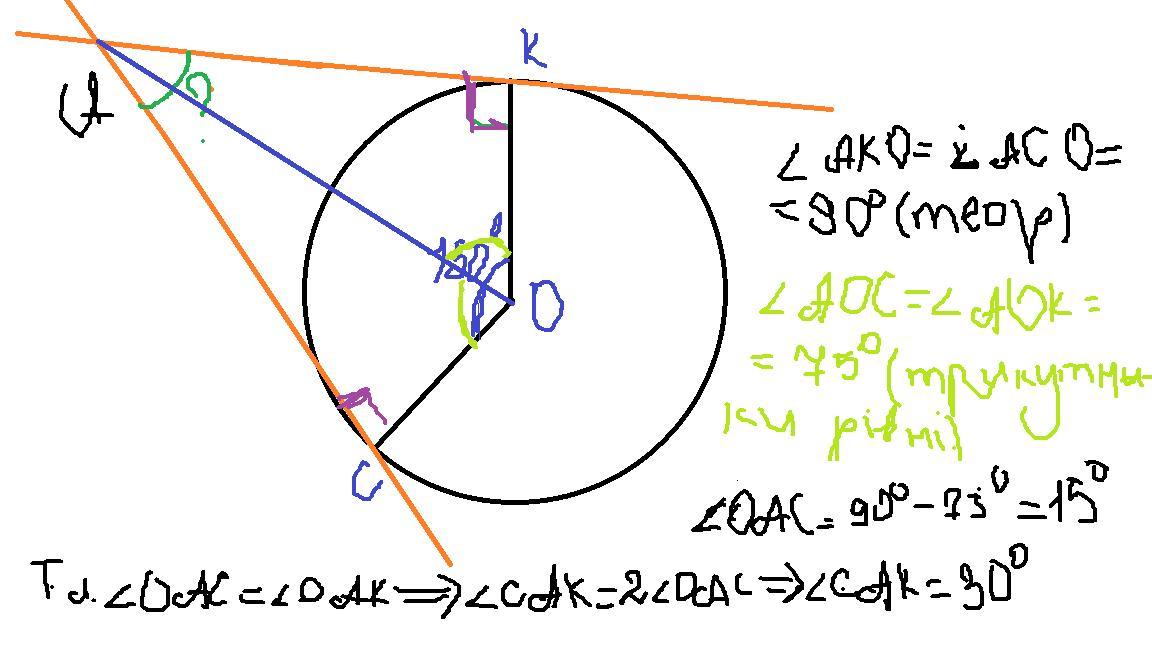 A
?
K
150°
O
C
∠AKO=∠ACO=
=90°(теор)
∠AOC=∠AOK=
=75°(трикутни-
ки рівні)
∠OAC=90°-75°=15°
Т.я. ∠OAC=∠OAK⇒∠CAK=2∠OAC⇒∠CAK=30°